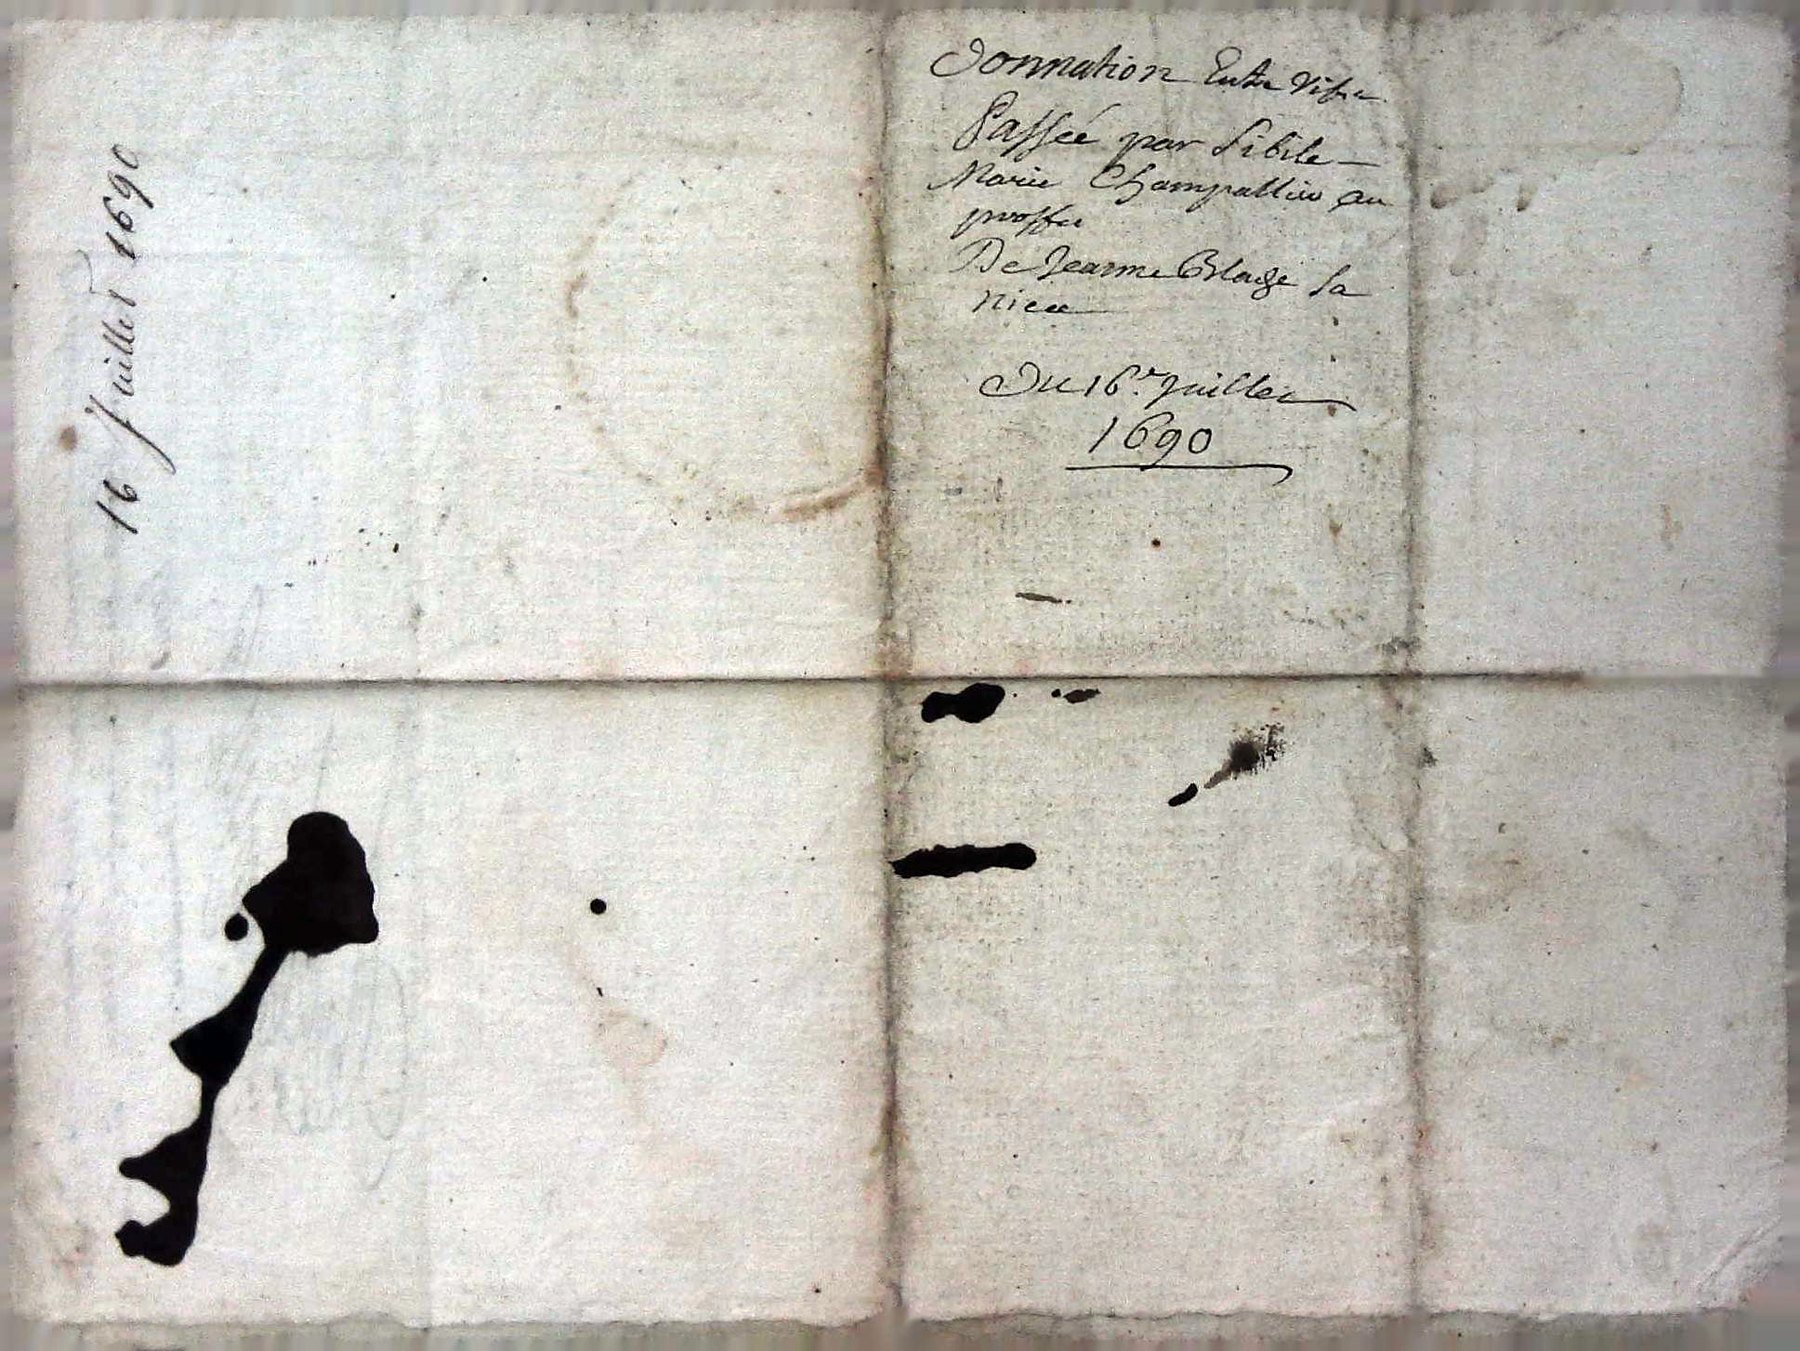 16 Juillet 1690
Donnation Entre Vifve
Passée par Sibile
Marie Champallier au
proffit
De Jeanne Blage sa
niece
Du 16.e Juillet
1690